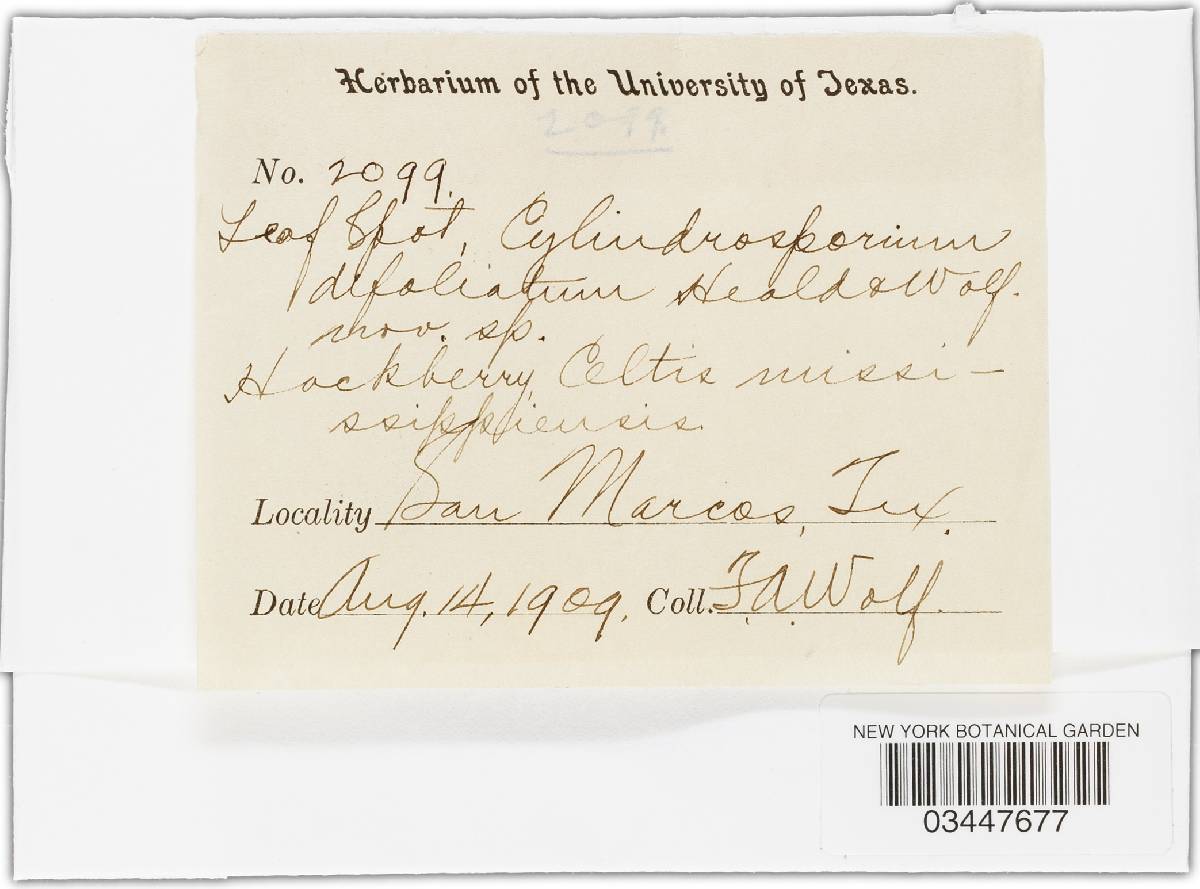 Herbarium of the University of Texas.
2099.
No. 2099.
Leaf Spot, Cylindrosporium
defoliatum Heald & Wolf.
nov. sp.
Hackberry, Celtis missi-
ssippiensis.
Locality San Marcos, Tex.
Date Aug. 14, 1909. Coll. F.A. Wolf.
NEW YORK BOTANICAL GARDEN
03447677